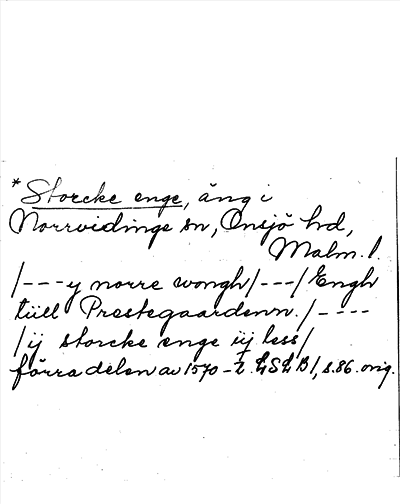 *Storcke enge, äng i
Norrvidinge sn, Onsjö hd,
Malm. l.
/---y norre wongh/---/Engh
tiill Prestegaardenn./----
/ij storcke enge iij less/
förra delen av 1570-t. LSLB 1, s.86. orig.